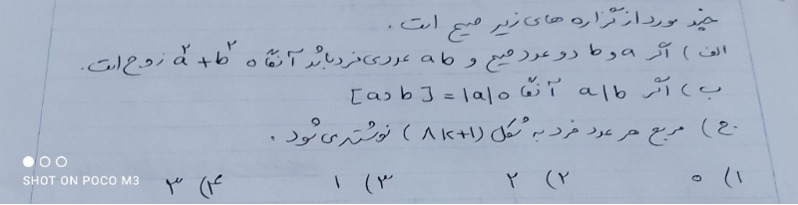 چند مورد از گزاره های زیر صحیح است.
الف ) اگر a و b دو عدد صحیح و ab عددی فرد باشد آنگاه a²+b² زوج است.
ب ) اگر a|b آنگاه [a,b] = |a|
ج ) مربع هر عدد فرد به شکل (۸k+۱) نوشته می شود.
۱) ۰ ۲) ۲ ۳) ۱ ۴) ۳
SHOT ON POCO M3